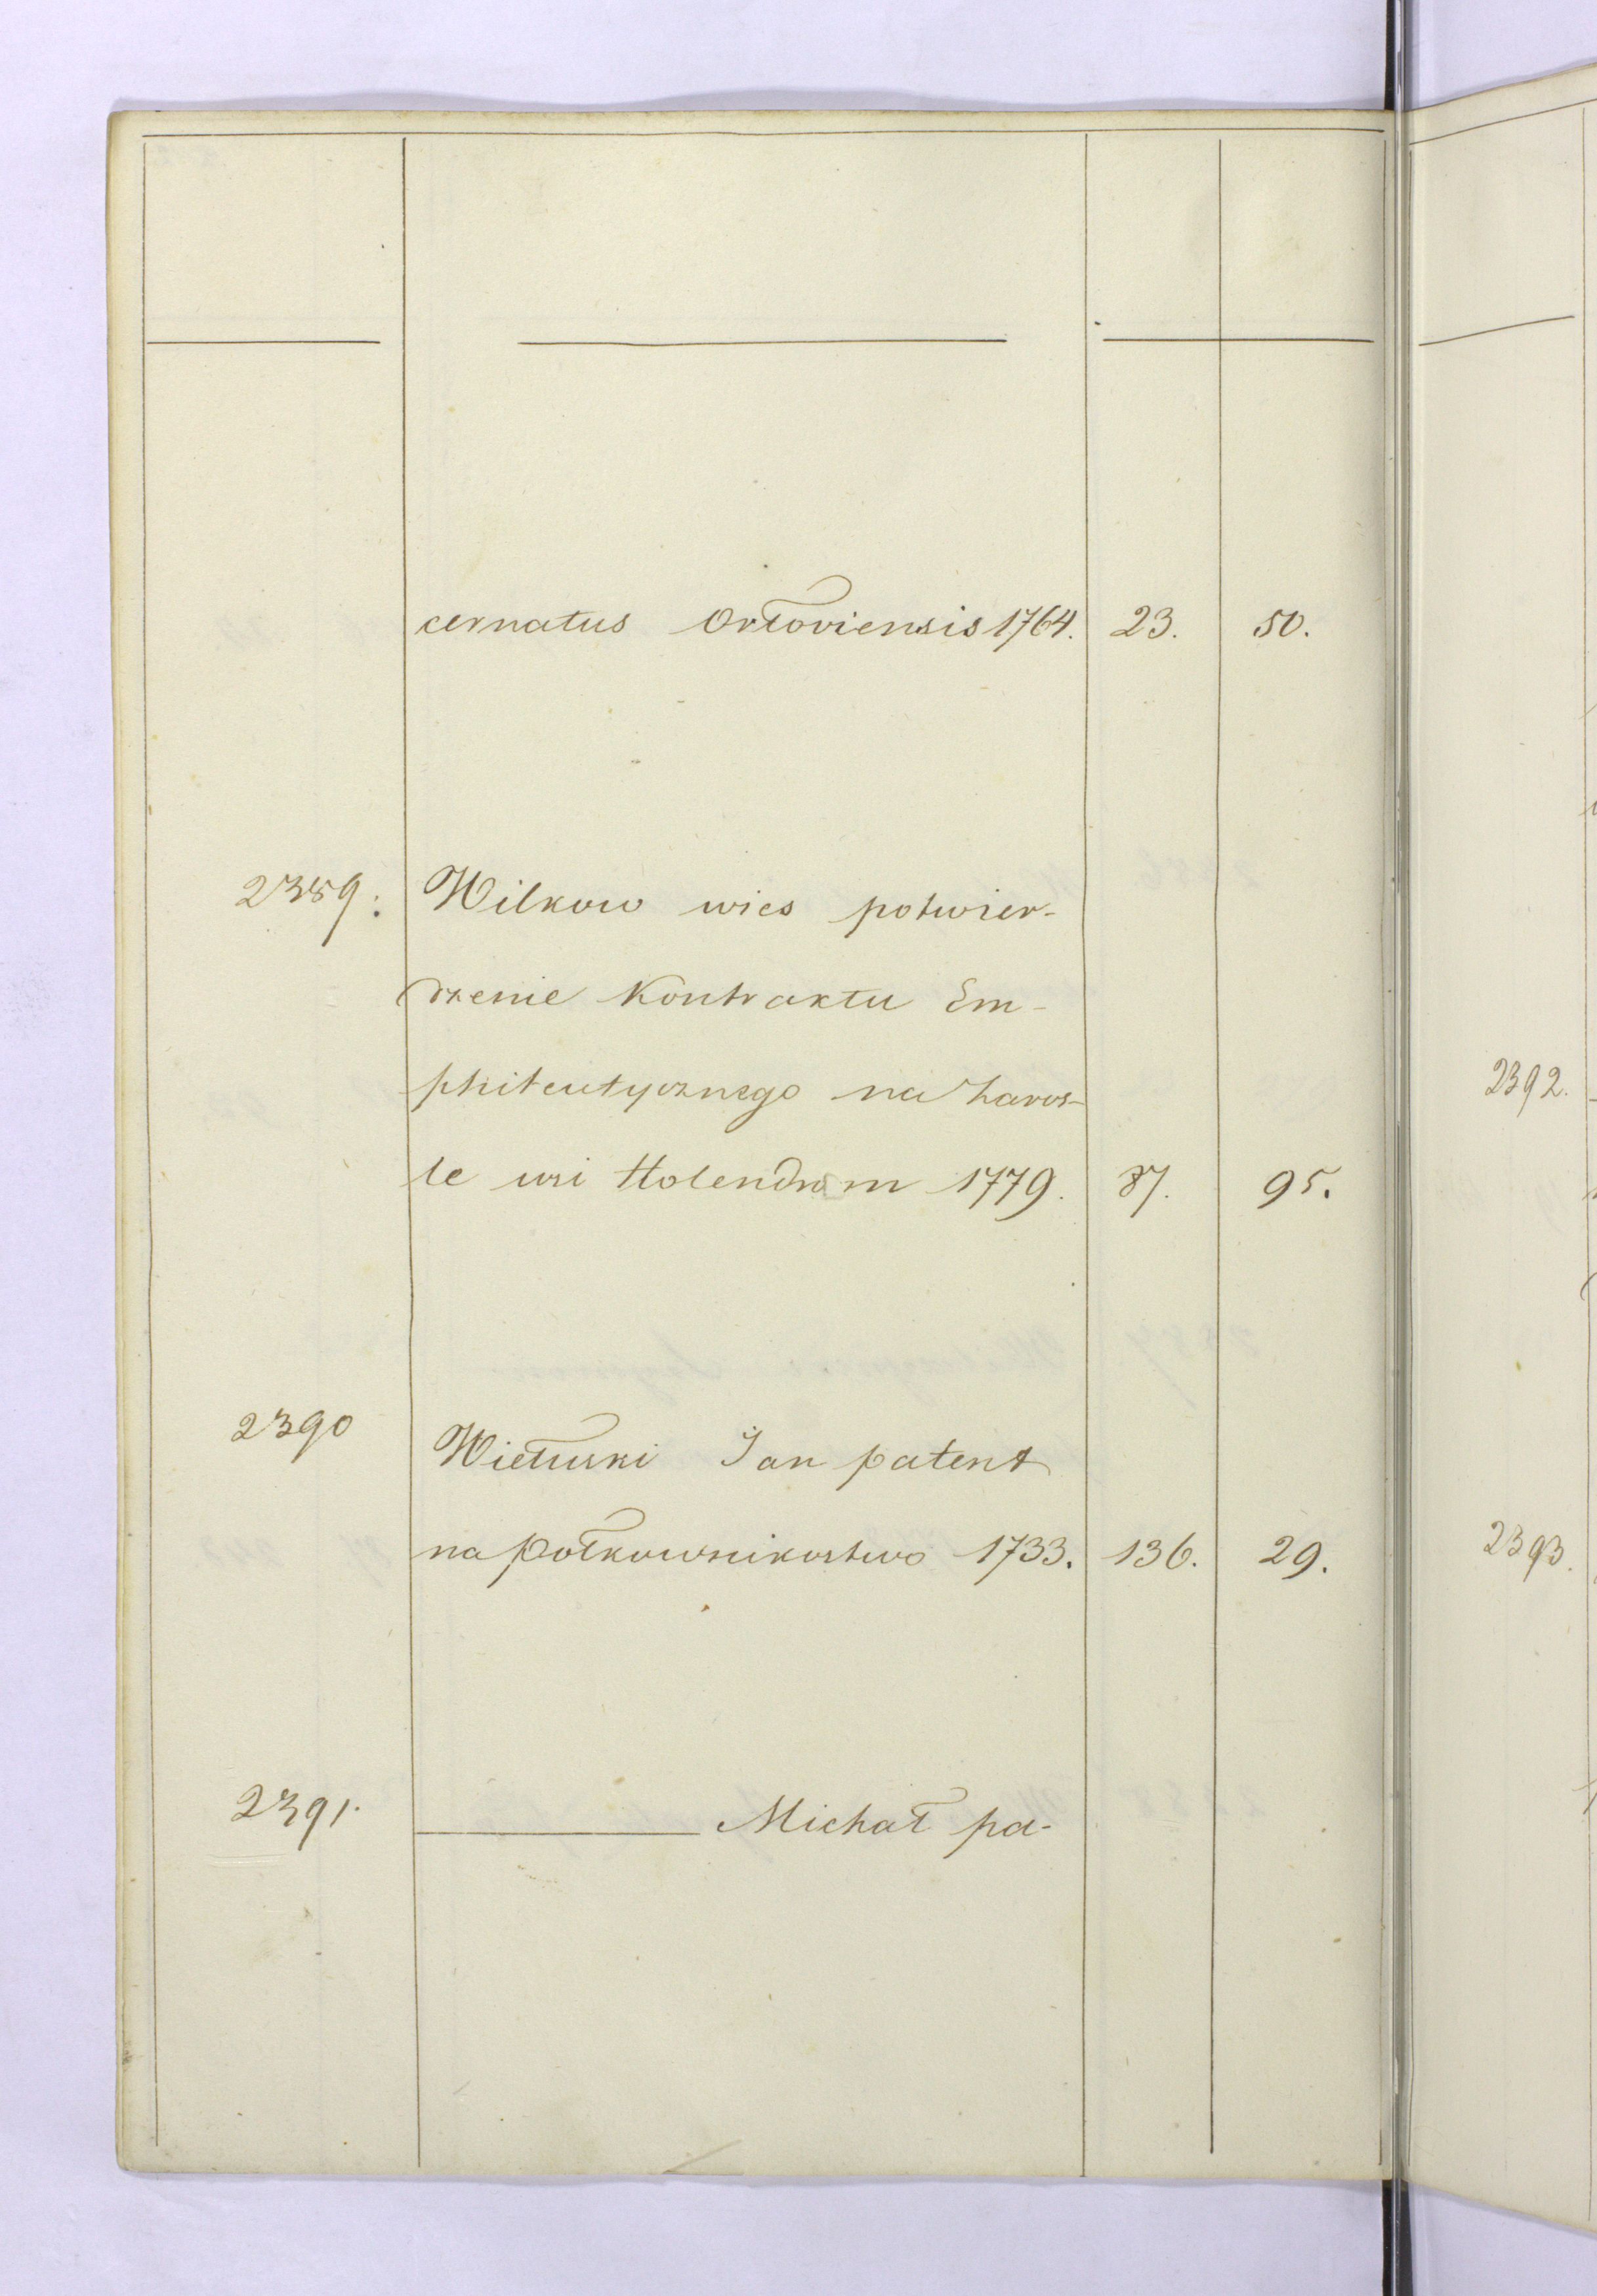 cernatus Orłoviensis 1764. 23. 50.
2389. Wilkow wies potwier-
dzenie Kontraktu Em-
phiteutycznego na Zaros-
le wsi Holendrom 1779. 87. 95.
2390 Wietuski Jan patent
na połkownikostwo 1733. 136. 29.
2391. Michał pa-
2392.
2393.